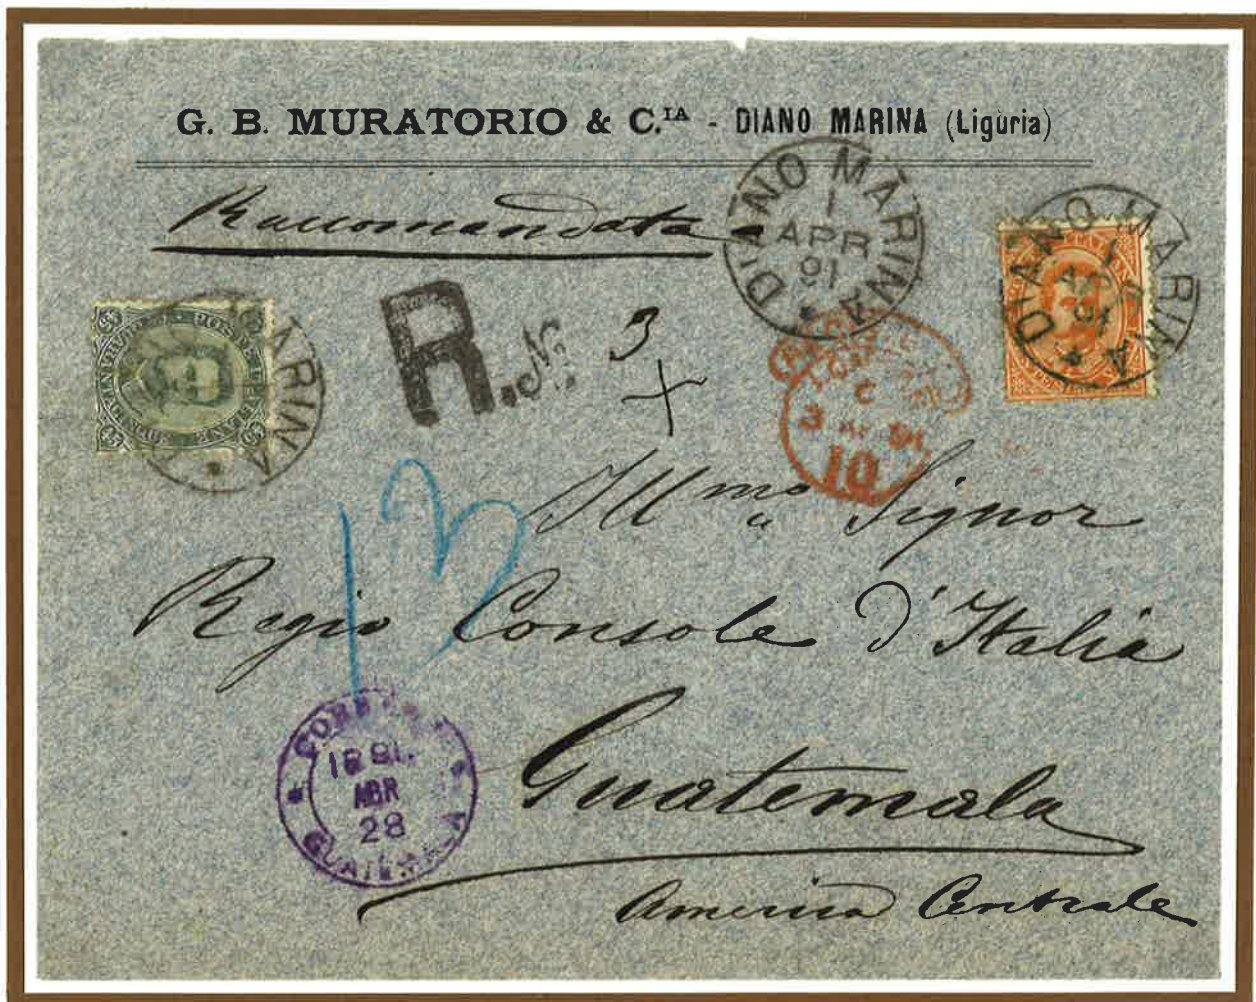 G. B. MURATORIO & C.IA - DIANO MARINA (Liguria)
Raccomandata
DIANO MARINA
1
APR
91
DIANO MARINA
1
91
POSTE ITALIANE
ARINA
R. No 3
C
3 AP 91
10
13
Illmo Signor
Regio Console d'Italia
Guatemala
America Centrale
CORREOS
1891.
ABR
28
GUATEMALA